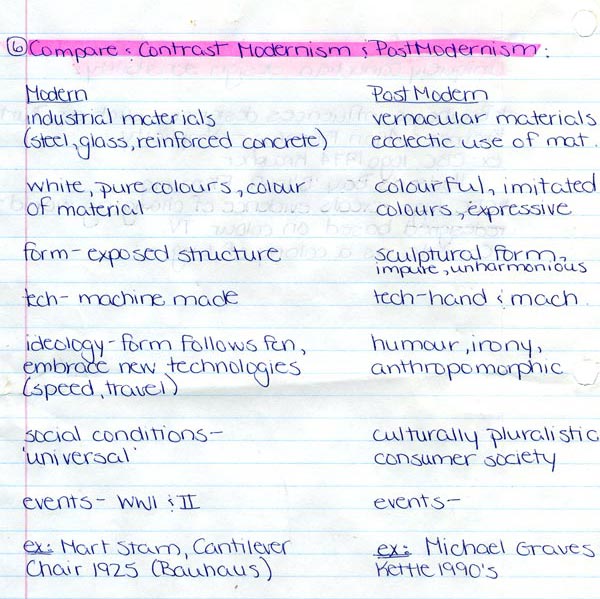 ⑥ Compare & Contrast Modernism & PostModernism:
Modern
industrial materials
(steel, glass, reinforced concrete)
white, pure colours, colour
of material
form- exposed structure
tech- machine made
ideology- form follows fcn,
embrace new technologies
(speed, travel)
social conditions-
'universal'
events- WWI & II
ex: Mart Stam, Cantilever
Chair 1925 (Bauhaus)
Post Modern
vernacular materials
ecclectic use of mat.
colourful, imitated
colours, expressive
sculptural form,
impure, unharmonious
tech-hand & mach.
humour, irony,
anthropomorphic
culturally pluralistic
consumer society
events-
ex: Michael Graves
Kettle 1990's